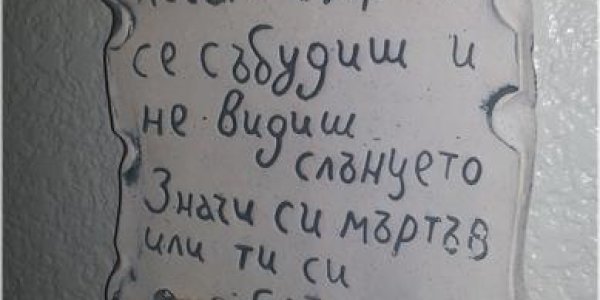 се събудиш и
не видиш
слънцето
Значи си мъртъв
или ти си